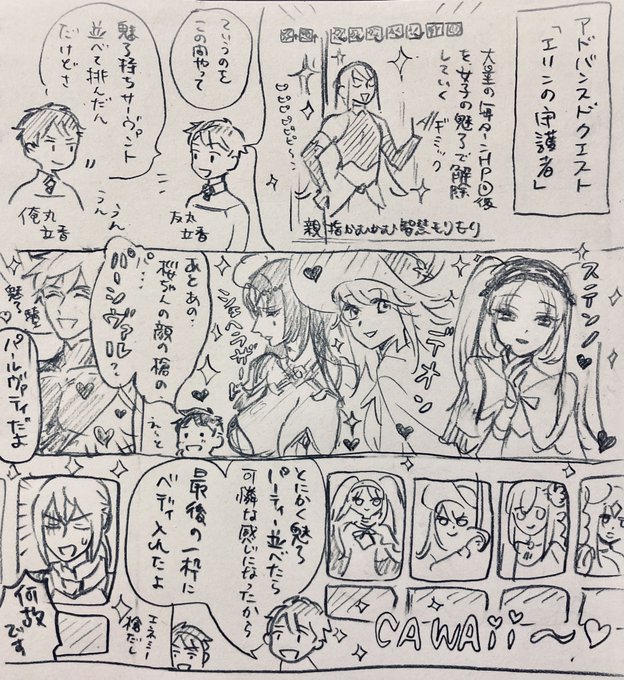 アドバンスドクエスト
「エリンの守護者」
大量の毎ターンHP回復
を女子の魅了で解除
していく
ギミック
親指かむかむ智慧もりもり
っていうのを
この間やって
友丸
立香
魅了持ちサーヴァント
並べて挑んだん
だけどさ
うん
うん
俺丸
立香
ステンノ
デオン
シェヘラザード
あとあの…
桜ちゃんの顔の槍の
パ…
パーシヴァル?
えーと
魅了
パールヴァティだよ
CAWAii～♡
とにかく魅了
パーティー並べたら
可憐な感じになったから
最後の一枠に
ベディ入れたよ
エネミー
槍だし
何故
です